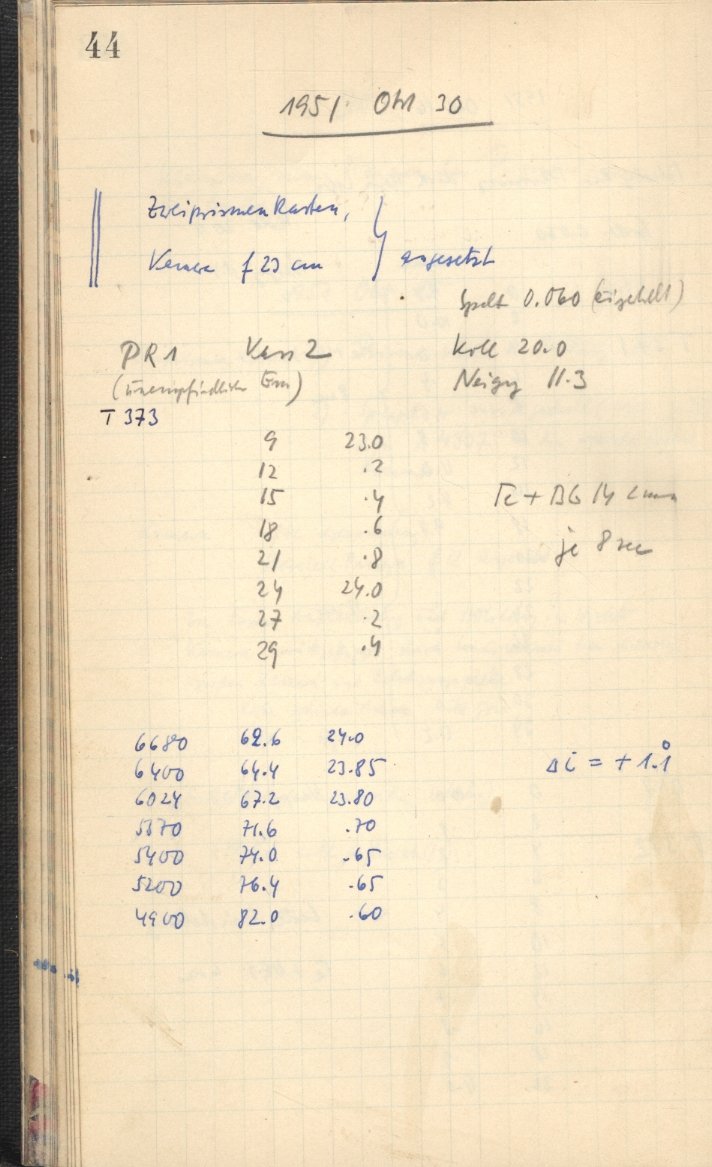 44
1951 Okt 30
Zweiprismenkasten,
Kamera f 23 cm } angesetzt
Spalt 0.060
PR1 Kass 2 Koll 20.0
(unempfindliche Em) Neigg 11.3
T 373
9 23.0
12 .2
15 .4 + BG 14 2 mm
18 .6
21 .8 je 8 sec
24 24.0
27 .2
29 .4
6680 62.6 24.0
6400 64.4 23.85 Δi = + 1.1°
6024 67.2 23.80
5570 71.6 .70
5400 74.0 .65
5200 76.4 .65
4900 82.0 .60